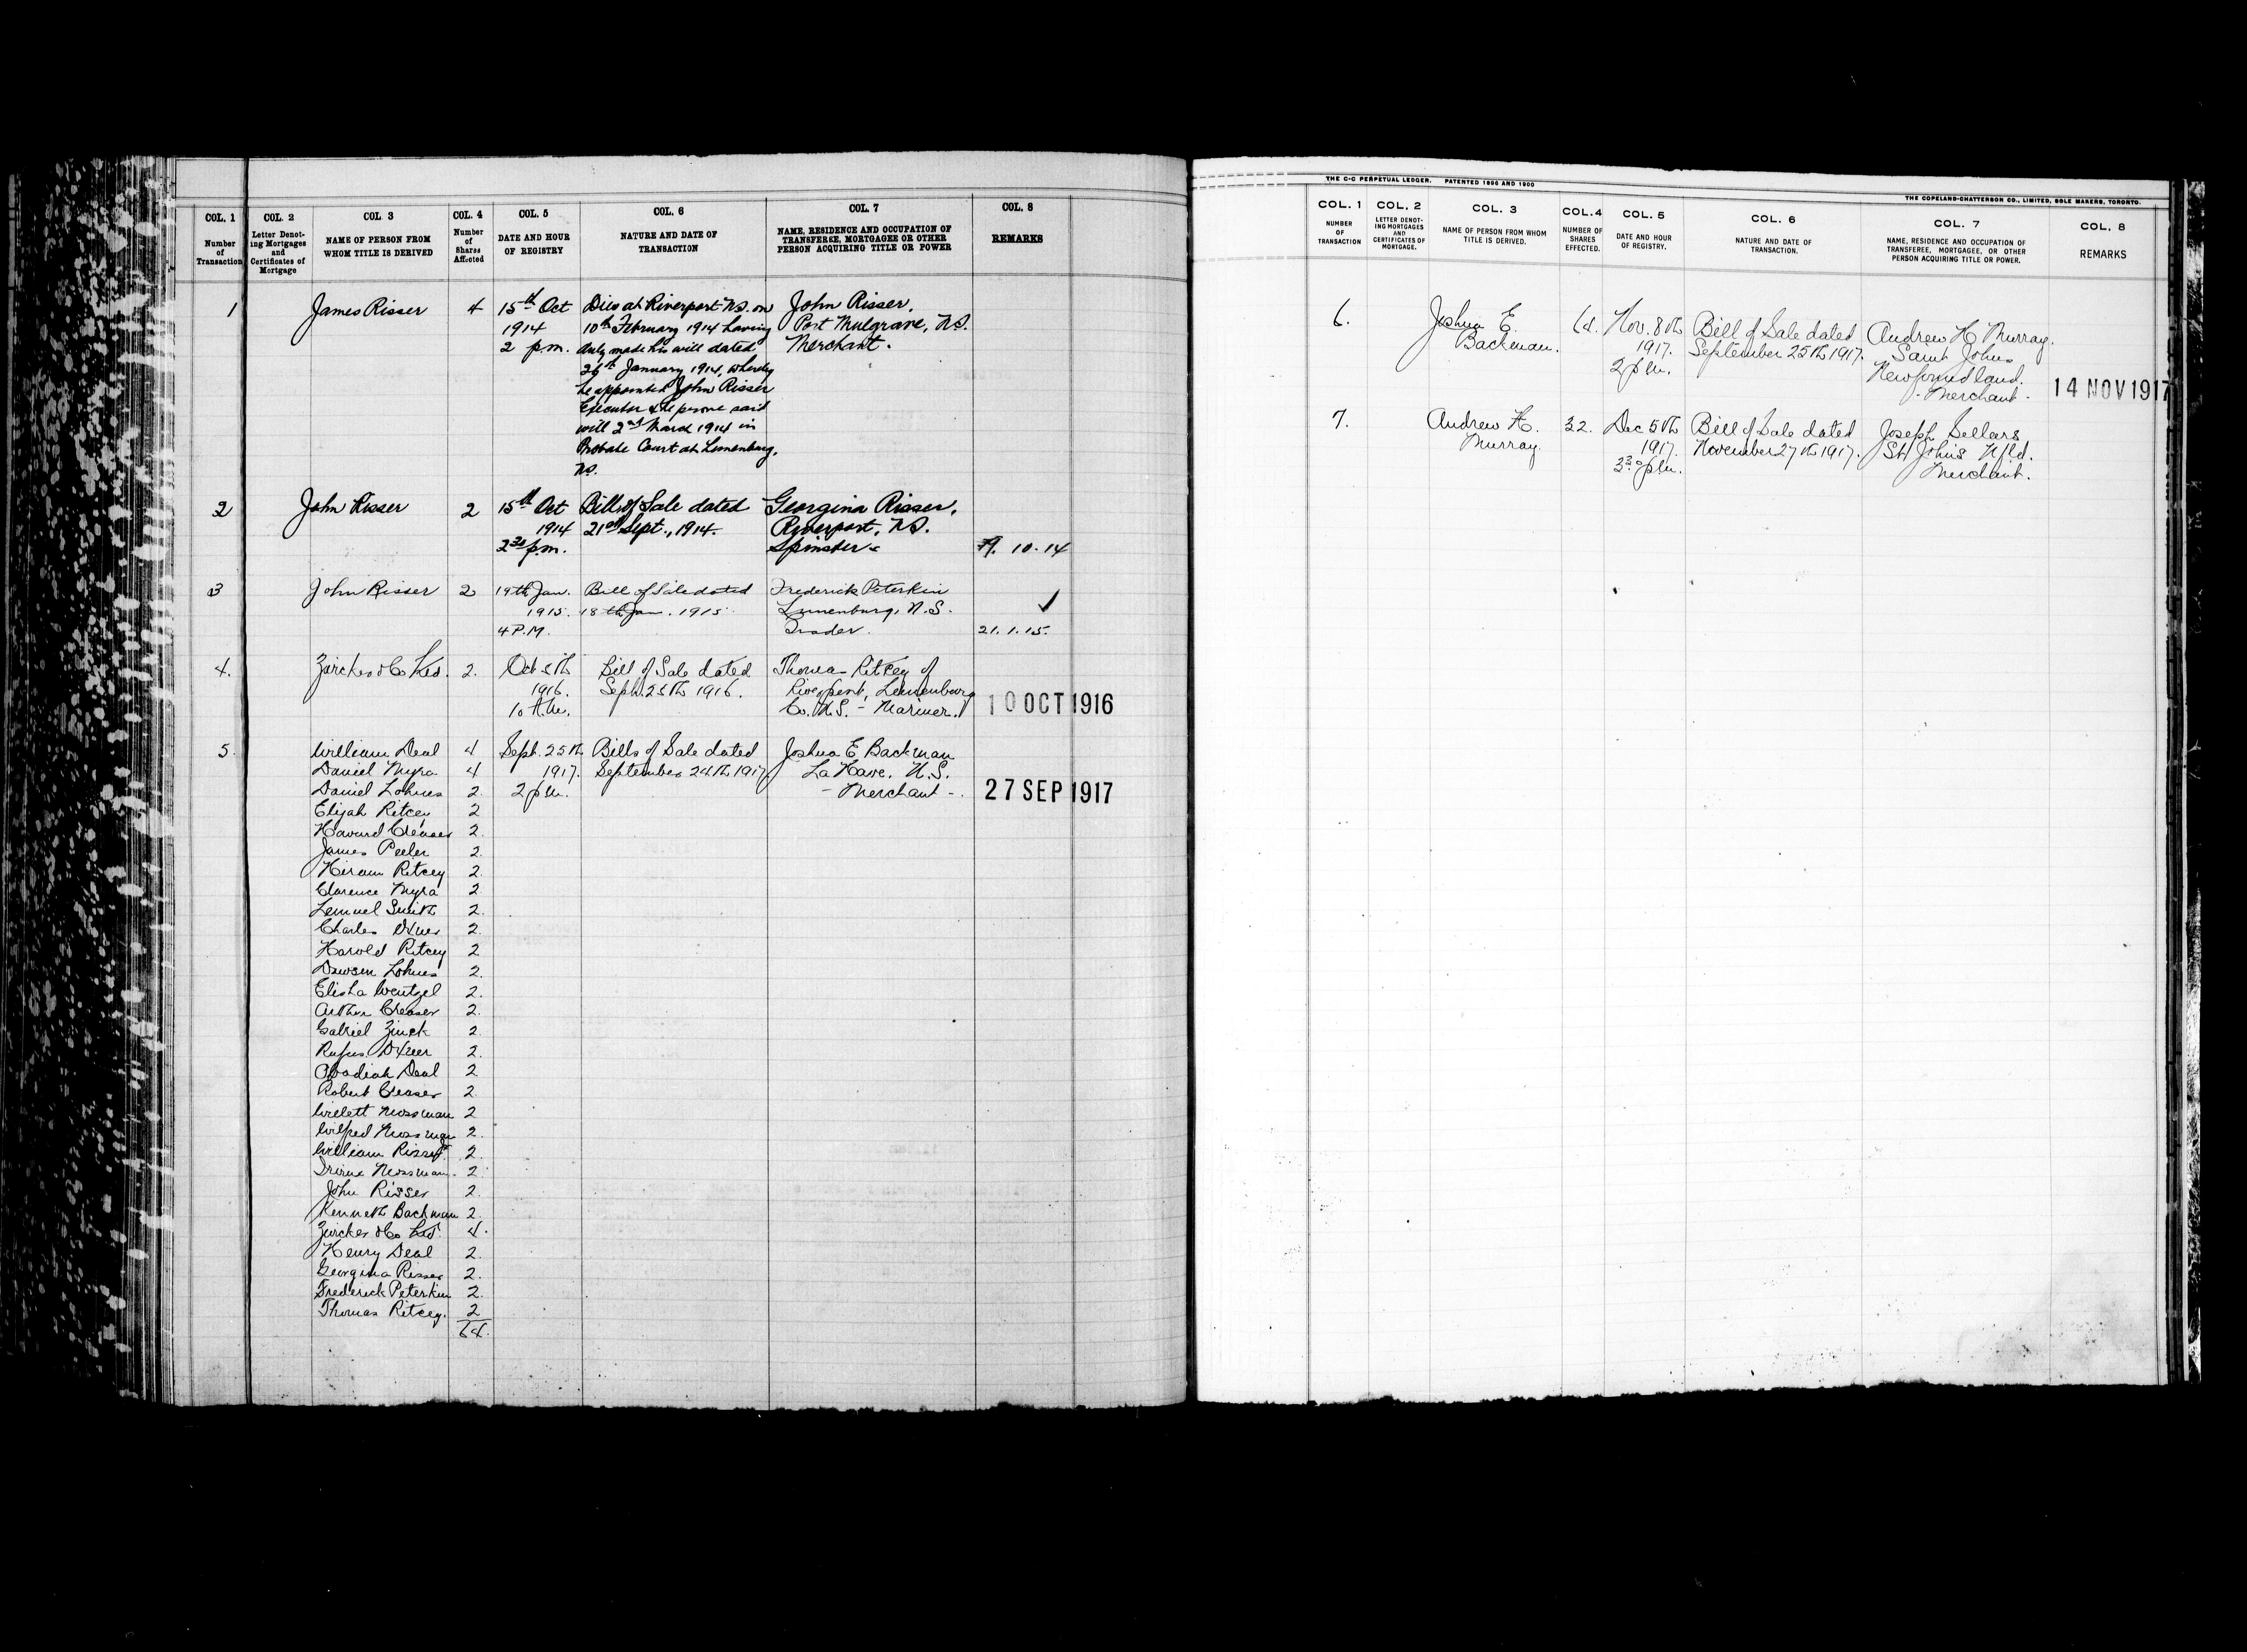 COL. 1 COL. 2 COL 3 COL. 4 COL. 5 COL. 6 COL. 7 COL. 8
Number of Transaction
Letter Denoting Mortgages and Certificates of Mortgage
NAME OF PERSON FROM WHOM TITLE IS DERIVED
Number of Shares Affected
DATE AND HOUR OF REGISTRY
NATURE AND DATE OF TRANSACTION
NAME, RESIDENCE AND OCCUPATION OF TRANSFEREE, MORTGAGEE OR OTHER PERSON ACQUIRING TITLE OR POWER
REMARKS
1 James Risser 4 15th Oct Died at Riverport N.S. on John Risser,
1914 10th February 1914 having Port Mulgrave, N.S.
2 p.m. duly made his will dated Merchant.
26th January 1914, whereby
he appointed John Risser
Executor & he prove said
will 2nd March 1914 in
Probate Court at Lunenburg,
N.S.
2 John Risser 2 15th Oct Bill of Sale dated Georgina Risser,
1914 21st Sept., 1914. Riverport, N.S.
2 30 p.m. Spinster 10.14
3 John Risser 2 19th Jan. Bill of Sale dated Frederick Peterkin
1915. 18th Jan. 1915 Lunenburg, N.S. ✓
4 P.M. Trader. 21.1.15.
4. Zwicker & Co Ltd. 2. Oct 5th Bill of Sale dated Thomas Ritcey of
1916. Sept. 25th 1916. Riverport, Lunenburg
10 A.M. Co. N.S. - Mariner. 10 OCT 1916
5. William Deal 4 Sept. 25th Bills of Sale dated Joshua E Backman
Daniel Myra 4 1917. September 24th 1917 La Have. N.S.
Daniel Lohnes 2. 2 p.m. - Merchant -. 27 SEP 1917
Elijah Ritcey 2
Howard Creaser 2.
James Peeler 2.
Hiram Ritcey 2
Clarence Myra 2
Lemuel Smith 2.
Charles Oxner 2.
Harold Ritcey 2
Dawson Lohnes 2.
Elisha Wentzel 2.
Arthur Creaser 2.
Gabriel Zinck 2
Rufus Oxner 2.
Obadiah Deal 2
Robert Creaser 2.
Willett Mossman 2
Wilfred Mossman 2.
William Risser 2.
Mossman. 2
John Risser 2.
Kenneth Backman 2.
Zwicker & Co Ltd. 4.
Henry Deal 2.
Georgina Risser 2.
Frederick Peterkin 2.
Thomas Ritcey. 2
64.
THE C-C PERPETUAL LEDGER. PATENTED 1896 AND 1900
THE COPELAND-CHATTERSON CO., LIMITED, SOLE MAKERS, TORONTO.
COL. 1 COL. 2 COL. 3 COL. 4 COL. 5 COL. 6 COL. 7 COL. 8
NUMBER OF TRANSACTION
LETTER DENOTING MORTGAGES AND CERTIFICATES OF MORTGAGE.
NAME OF PERSON FROM WHOM TITLE IS DERIVED.
NUMBER OF SHARES EFFECTED.
DATE AND HOUR OF REGISTRY.
NATURE AND DATE OF TRANSACTION.
NAME, RESIDENCE AND OCCUPATION OF TRANSFEREE, MORTGAGEE, OR OTHER PERSON ACQUIRING TITLE OR POWER.
REMARKS
6. Joshua E. 64. Nov. 8th Bill of Sale dated Andrew H Murray.
Backman. 1917. September 25th 1917. Saint Johns
2 p.m. Newfoundland.
- Merchant - 14 NOV 1917
7. Andrew H. 32. Dec 5th Bill of Sale dated Joseph Sellars
Murray. 1917. November 27th 1917. St Johns Nfld.
3 30 p.m. Merchant.